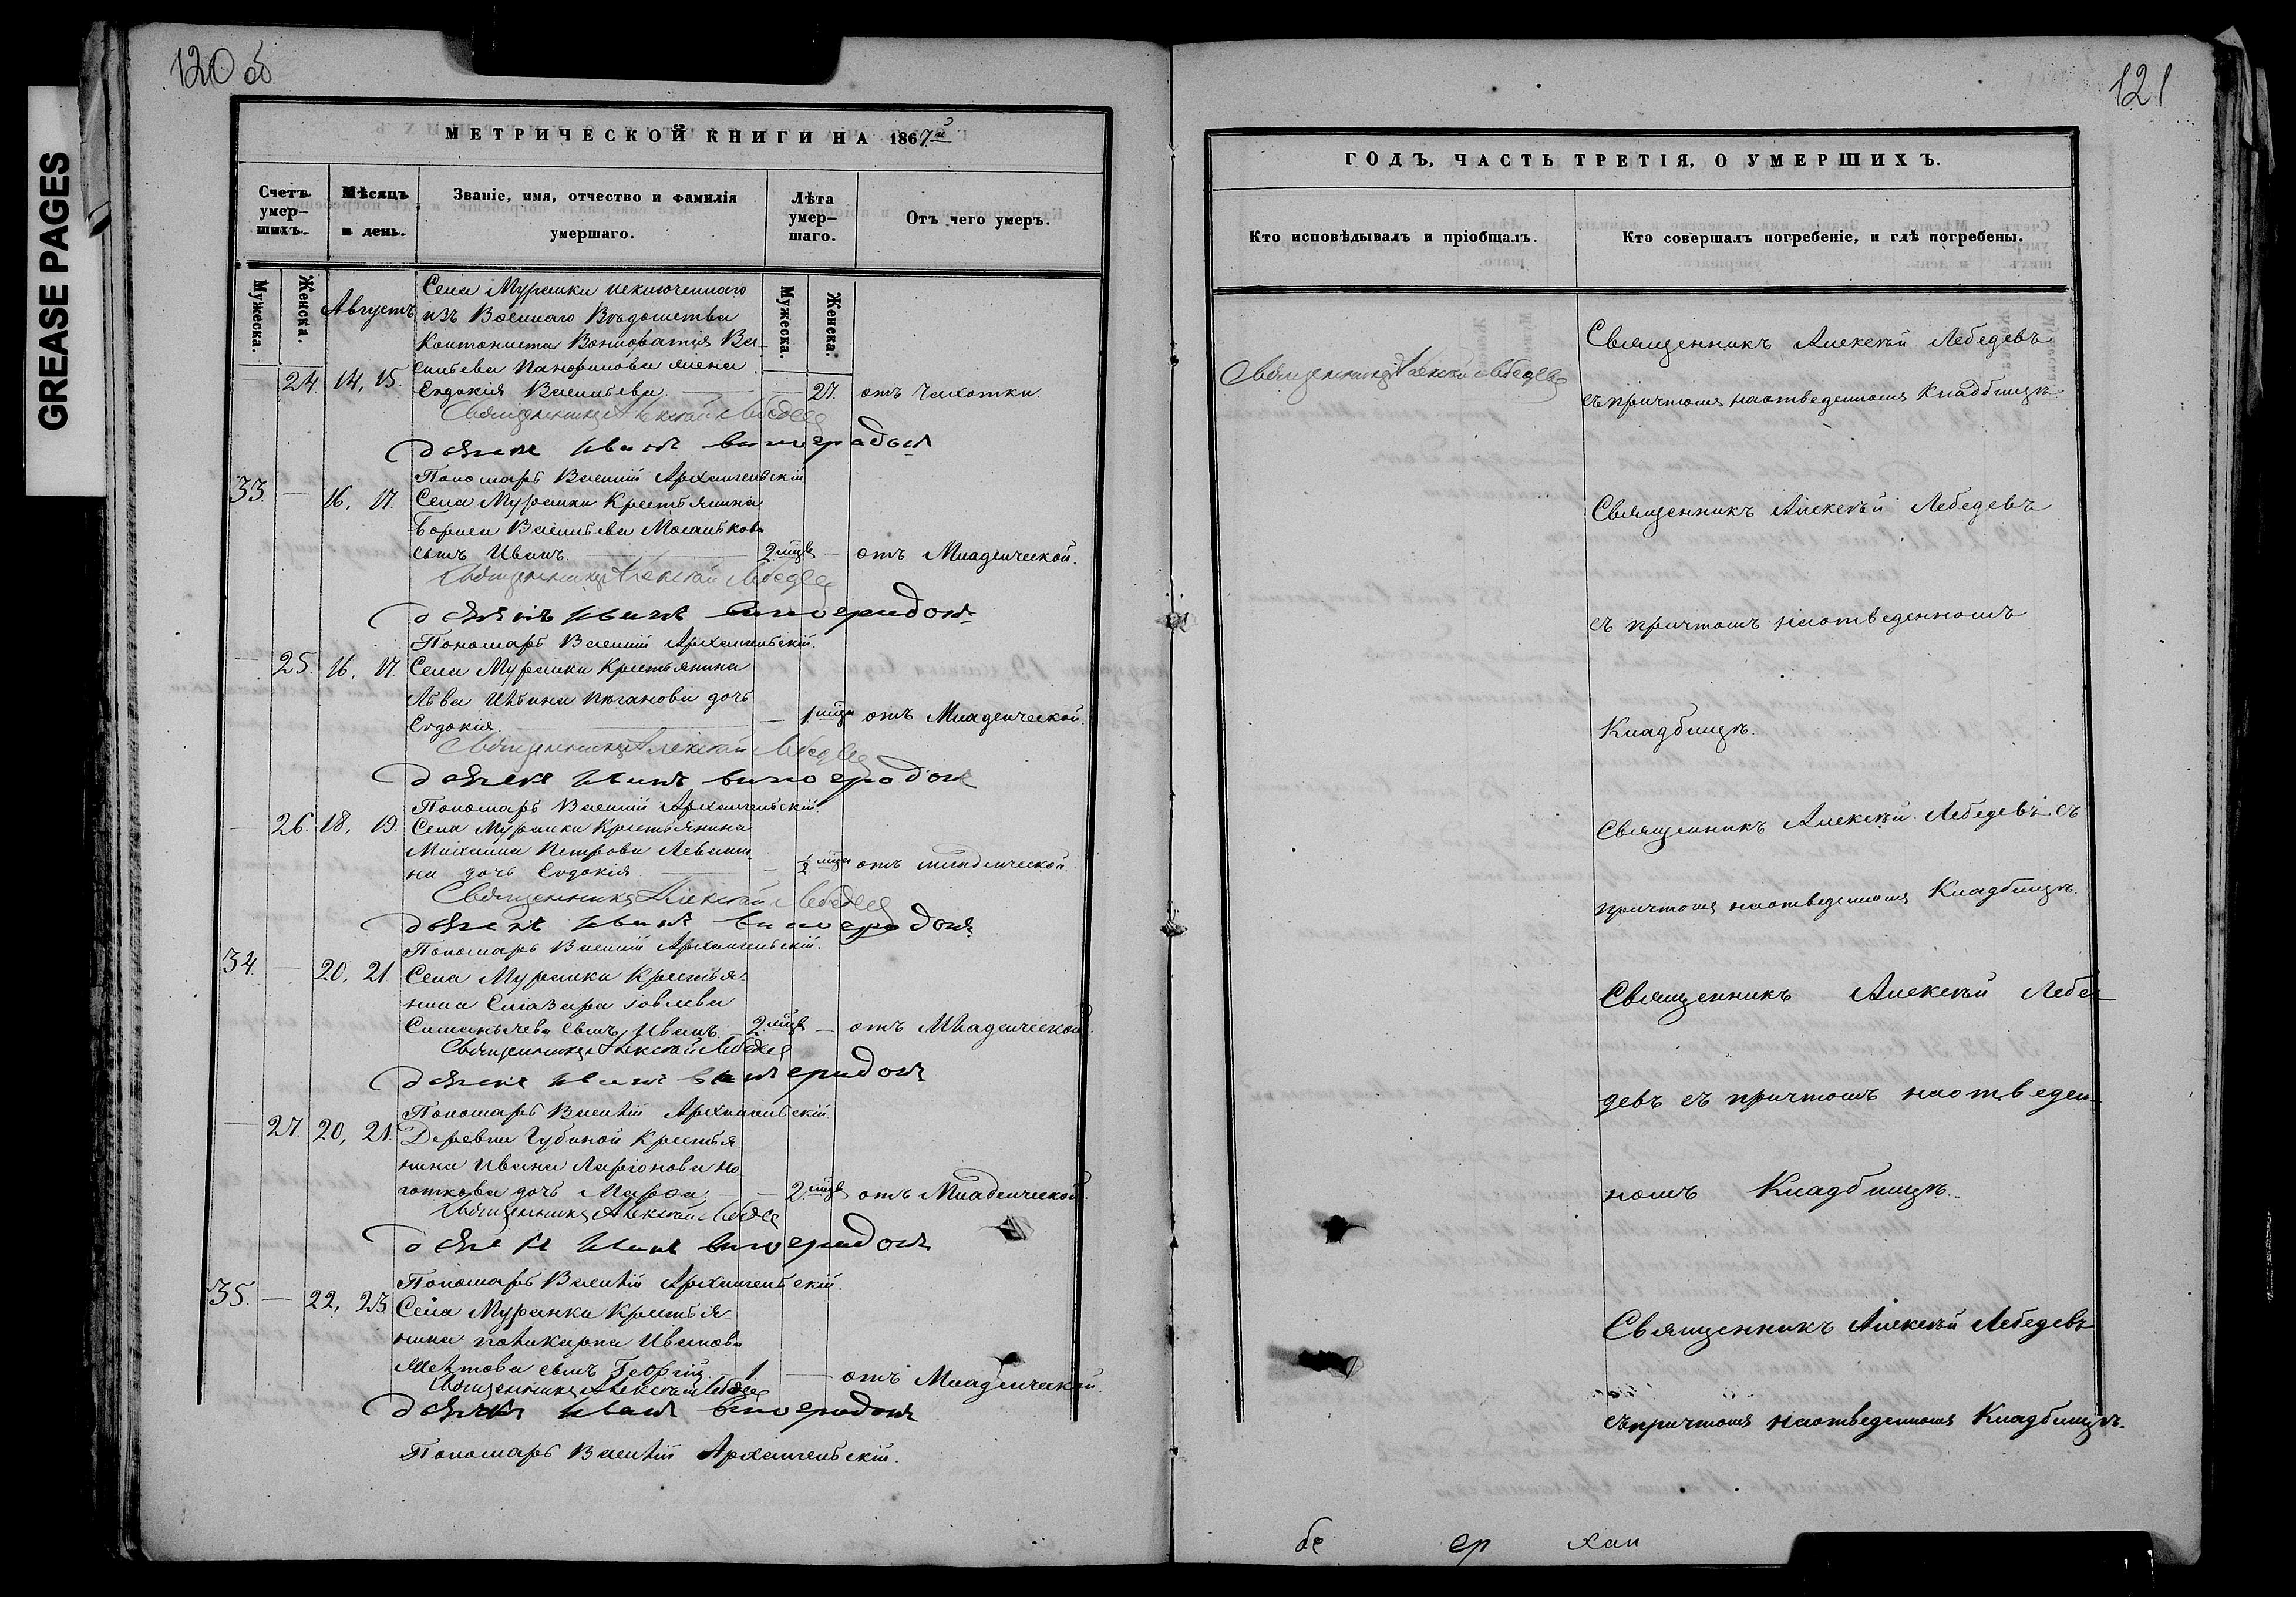 GREASE PAGES
120 об
МЕТРИЧЕСКОЙ КНИГИ НА 1867й
Счетъ умер-шихъ.
Мѣсяцъ и день.
Званіе, имя, отчество и фамилія умершаго.
Лѣта умер-шаго.
Отъ чего умеръ.
Мужеска.
Женска.
Мужеска.
Женска.
Августъ
Села Муранки исключеннаго
изъ Военнаго Вѣдомства
Кантониста Вонифатія Ва-
сильева Панфилова жена
24. 14, 15. Евдокія Васильева. — 27. отъ Чахотки.
Священникъ Алексѣй Лебедевъ
Дьячекъ Иванъ Виноградовъ
Пономарь Василій Архангельскій
33. — 16, 17. Села Муранки Крестьянина
Бориса Васильева
сынъ Иванъ. — 2 мцв — отъ Младенческой.
Священникъ Алексѣй Лебедевъ
Дьячекъ Иванъ Виноградовъ
Пономарь Василій Архангельскій.
— 25. 16, 17. Села Муранки Крестьянина
Льва Ильина Поганова дочь
Евдокія — 1 мцъ отъ Младенческой.
Священникъ Алексѣй Лебедевъ
Дьячекъ Иванъ Виноградовъ
Пономарь Василій Архангельскій.
— 26. 18, 19. Села Муранки Крестьянина
Михаила Петрова Леваши-
на дочь Евдокія — ½ мцъ отъ младенческой.
Священникъ Алексѣй Лебедевъ
Дьячекъ Иванъ Виноградовъ
Пономарь Василій Архангельскій.
34. — 20, 21. Села Муранки Крестья-
нина Елазара Іовлева
сынъ Иванъ. 2 мцв — отъ Младенческой.
Священникъ Алексѣй Лебедевъ
Дьячекъ Иванъ Виноградовъ
Пономарь Василій Архангельскій.
— 27. 20, 21. Деревни Губиной Крестья-
нина Ивана Ларіонова Но-
готкова дочь Марфа — 2 мцв отъ Младенческой.
Священникъ Алексѣй Лебедевъ
Дьячекъ Иванъ Виноградовъ
Пономарь Василій Архангельскій.
35. — 22, 23. Села Муранки Крестья-
нина Поликарпа Иванова
сынъ Георгій. 1 — отъ Младенческой.
Священникъ Алексѣй Лебедевъ
Дьячекъ Иванъ Виноградовъ
Пономарь Василій Архангельскій.
121
ГОДЪ, ЧАСТЬ ТРЕТІЯ, О УМЕРШИХЪ.
Кто исповѣдывалъ и пріобщалъ.
Кто совершалъ погребеніе, и гдѣ погребены.
Священникъ Алексѣй Лебедевъ
Священникъ Алексѣй Лебедевъ
съ причтомъ на отведенномъ Кладбищѣ.
Священникъ Алексѣй Лебедевъ
съ причтомъ на отведенномъ
Кладбищѣ.
Священникъ Алексѣй Лебедевъ съ
причтомъ на отведенномъ Кладбищѣ.
Священникъ Алексѣй Лебе-
девъ съ причтомъ на отведен-
номъ Кладбищѣ.
Священникъ Алексѣй Лебедевъ
съ причтомъ на отведенномъ Кладбищѣ.
бе ер хан